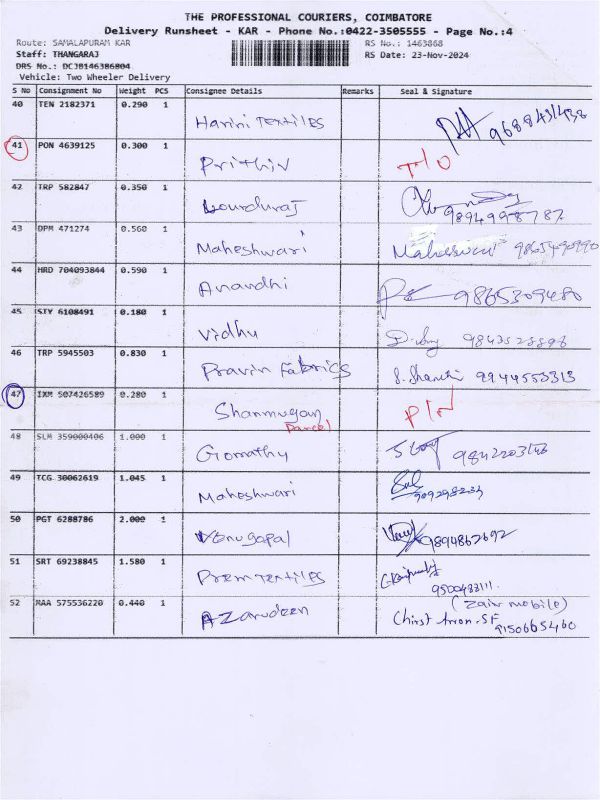 THE PROFESSIONAL COURIERS, COIMBATORE
Delivery Runsheet - KAR - Phone No.:0422-3505555 - Page No.:4
Route: SAMALAPURAM KAR RS No.: 1463868
Staff: THANGARAJ RS Date: 23-Nov-2024
DRS No.: DCJB146386804
Vehicle: Two Wheeler Delivery
S No Consignment No Weight PCS Consignee Details Remarks Seal & Signature
40 TEN 2182371 0.290 1 Harini Textiles 9688431438
41 PON 4639125 0.300 1 Prithiv T/O
42 TRP 582847 0.350 1 Lourduraj 9894998787
43 DPM 471274 0.560 1 Maheshwari Maheswari 9865490990
44 HRD 704093844 0.590 1 Anandhi 9865309480
45 STY 6108491 0.180 1 Vidhu
46 TRP 5945503 0.830 1 Pravin Fabrics 9944553313
47 IXM 507426589 0.280 1 Shanmugam
Parcel
48 SLM 359000406 1.000 1 Gomathy
49 TCG 30062619 1.045 1 Maheshwari
50 PGT 6288786 2.000 1 Venugopal 9894862692
51 SRT 69238845 1.580 1 Prem Textiles 9500483111
52 MAA 575536220 0.440 1 Azarudeen (Zain mobile)
9150665460